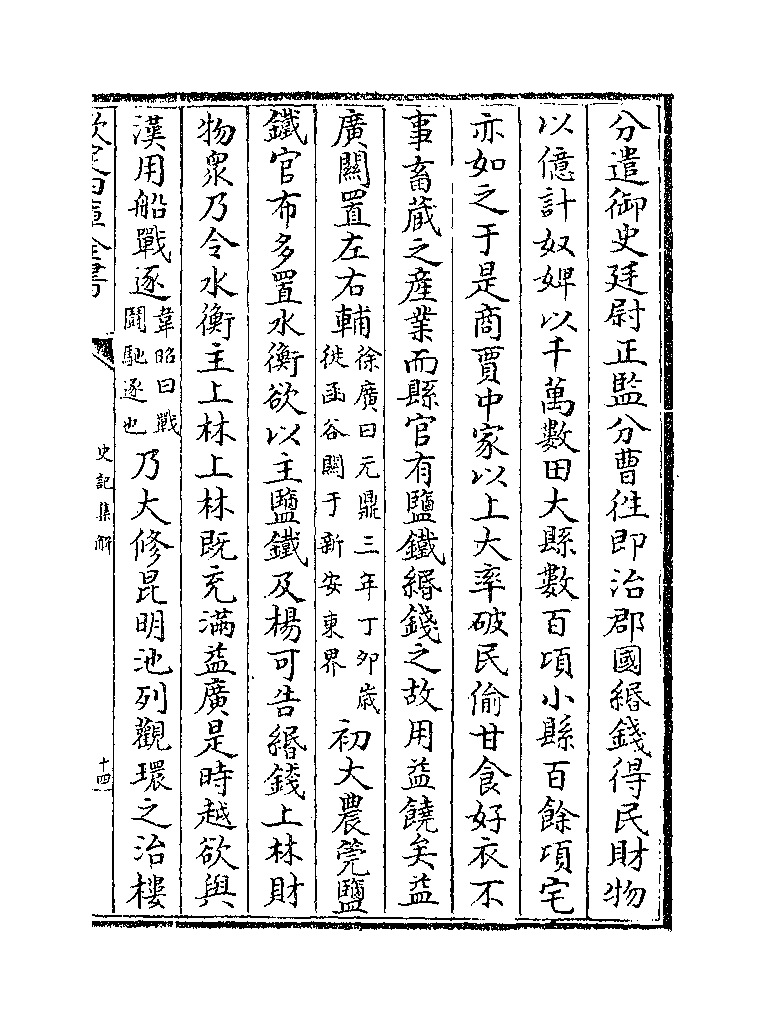 分遣御史廷尉正監分曹徃即治郡國緡錢得民財物
以億計奴婢以千萬數田大縣數百頃小縣百餘頃宅
亦如之于是商賈中家以上大率破民偷甘食好衣不
事畜蔵之產業而縣官有鹽鐵緡錢之故用益饒矣益
廣關置左右輔
徐廣曰元鼎三年丁夘歳
徙函谷關于新安東界
初大農筦鹽
鐵官布多置水衡欲以主鹽鐵及楊可告緡錢上林財
物衆乃令水衡主上林上林既充滿益廣是時越欲與
漢用船戰逐
韋昭曰戰
鬬馳逐也
乃大修昆明池列觀環之治樓
欽定四庫全書
史記集解
十四